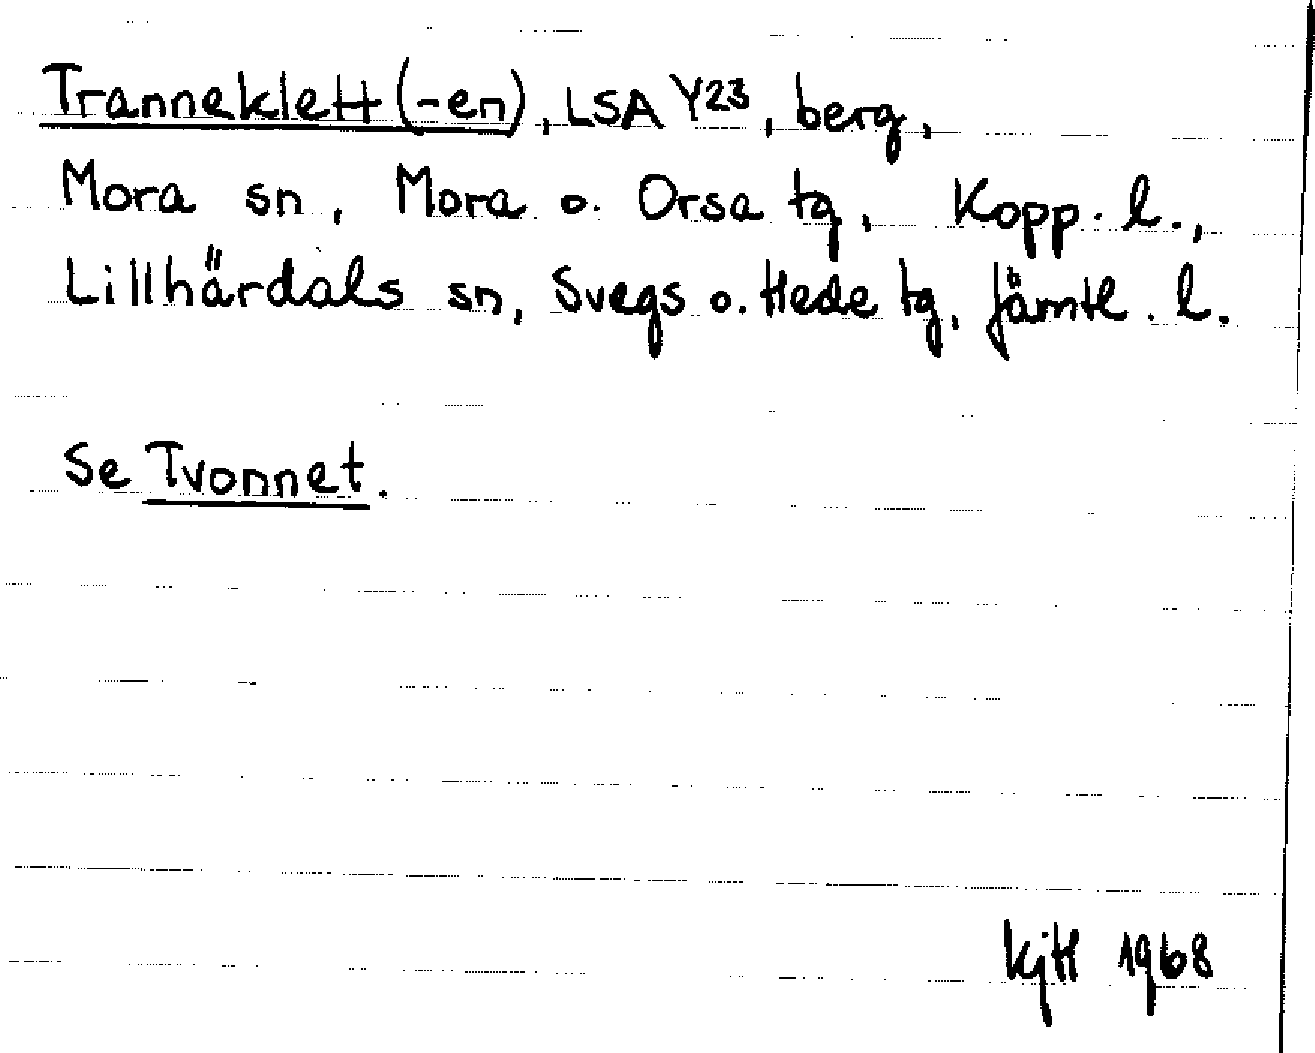 Tranneklett (-en), LSA Y23, berg,
Mora sn, Mora o. Orsa tg, Kopp. l.,
Lillhärdals sn, Svegs o. Hede tg, Jämtl. l.
Se Tvonnet.
1968